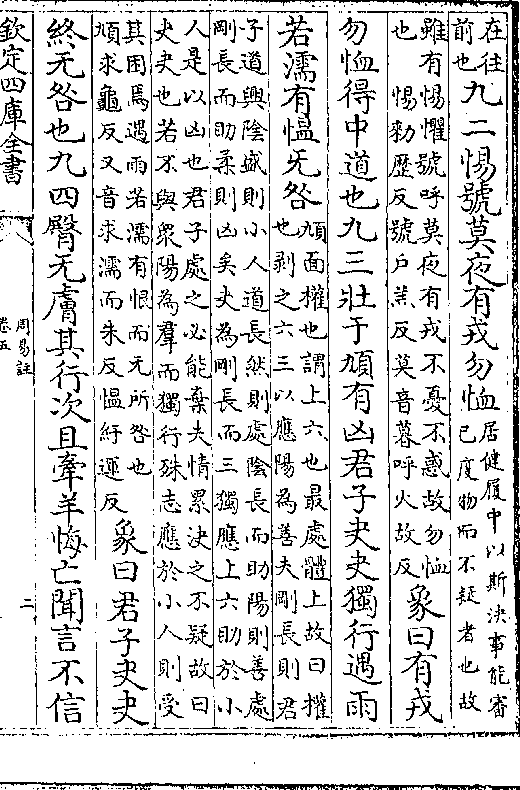 在往
前也
九二惕號莫夜有戎勿恤
居健履中以斯決事能審
已度物而不疑者也故
雖有惕懼號呼莫夜有戎不憂不惑故勿恤
也 惕勑歷反號户羔反莫音暮呼火故反
象曰有戎
勿恤得中道也九三壯于頄有凶君子夬夬獨行遇雨
若濡有愠无咎
頄面權也謂上六也最處體上故曰權
也剥之六三以應陽為善夫剛長則君
子道興陰盛則小人道長然則處陰長而助陽則善處
剛長而助柔則凶矣夬為剛長而三獨應上六助於小
人是以凶也君子處之必能棄夫情累決之不疑故曰
夬夬也若不與衆陽為羣而獨行殊志應於小人則受
其困焉遇雨若濡有恨而无所咎也
頄求龜反又音求濡而朱反愠紆運反
象曰君子夬夬
終无咎也九四臀无膚其行次且牽羊悔亡聞言不信
欽定四庫全書
周易註
卷五
二